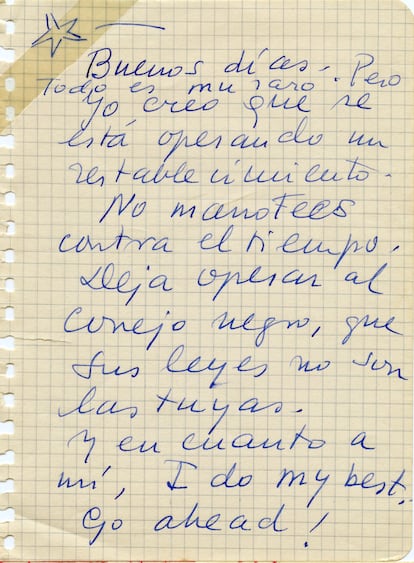 Buenos días. Pero
Todo es muy raro.
Yo creo que se
está operando un
restablecimiento.
No manotees
contra el tiempo.
Deja operar al
conejo negro, que
sus leyes no son
las tuyas.
Y en cuanto a
mí, I do my best.
Go ahead!